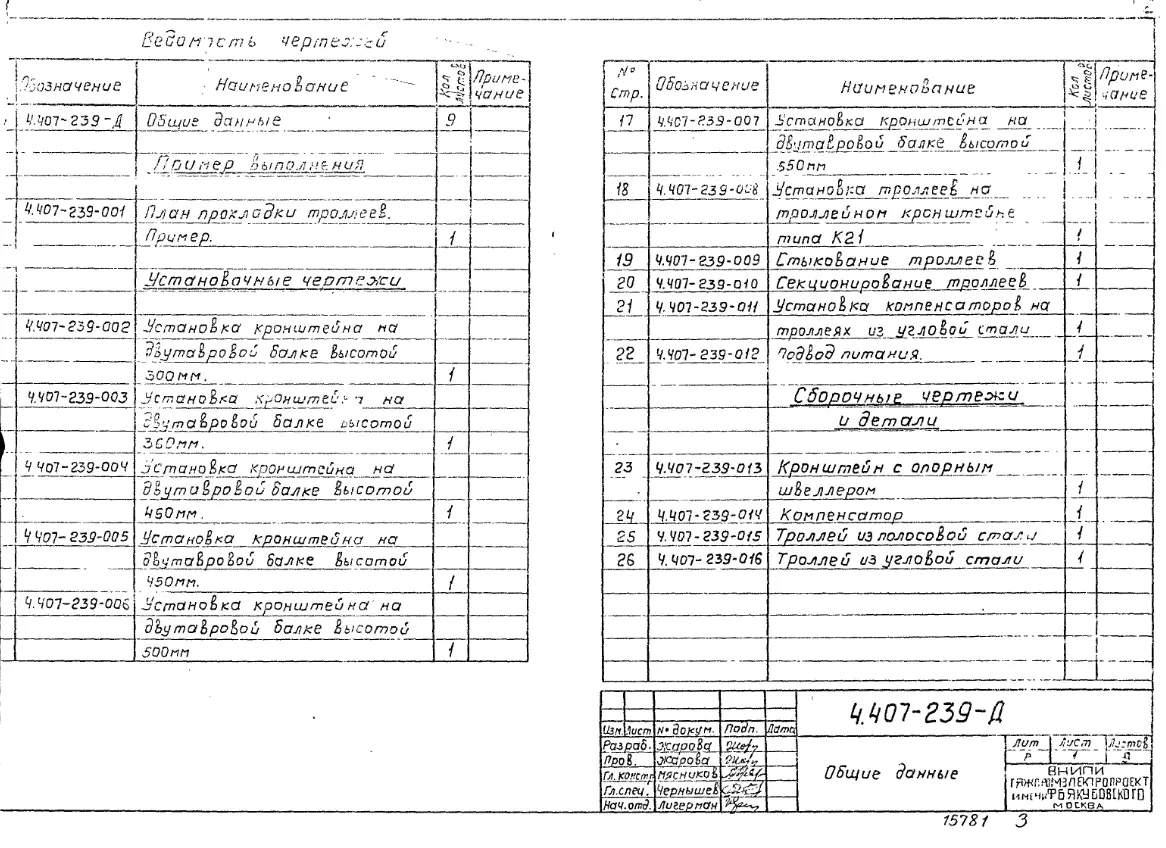 Ведомость чертежей
Обозначение Наименование Кол. листов Приме-
чание
4.407-239-Д Общие данные 9
Пример выполнения
4.407-239-001 План прокладки троллеев.
Пример. 1
Установочные чертежи
4.407-239-002 Установка кронштейна на
двутавровой балке высотой
300мм. 1
4.407-239-003 Установка кронштейна на
двутавровой балке высотой
360мм. 1
4.407-239-004 Установка кронштейна на
двутавровой балке высотой
450мм. 1
4.407-239-005 Установка кронштейна на
двутавровой балке высотой
450мм. 1
4.407-239-006 Установка кронштейна на
двутавровой балке высотой
500мм 1
№ Стр. Обозначение Наименование Кол. листов Приме-
чание
17 4.407-239-007 Установка кронштейна на
двутавровой балке высотой
550мм 1
18 4.407-239-008 Установка троллеев на
троллейном кронштейне
типа К21 1
19 4.407-239-009 Стыкование троллеев 1
20 4.407-239-010 Секционирование троллеев 1
21 4.407-239-011 Установка компенсаторов на
троллеях из угловой стали 1
22 4.407-239-012 Подвод питания. 1
Сборочные чертежи
и детали
23 4.407-239-013 Кронштейн с опорным
швеллером 1
24 4.407-239-014 Компенсатор 1
25 4.407-239-015 Троллей из полосовой стали 1
26 4.407-239-016 Троллей из угловой стали 1
4.407-239-Д
Изм. Лист № докум. Подп. Дата
Разраб. Жарова
Пров. Жарова
Гл.констр Мясников
Гл.спец. Чернышев
Нач.отд. Лигерман
Общие данные
Лит Лист Листов
Р 1
ВНИПИ
ТЯЖПРОМЭЛЕКТРОПРОЕКТ
имени Ф.Б.ЯКУБОВСКОГО
МОСКВА
15781 3